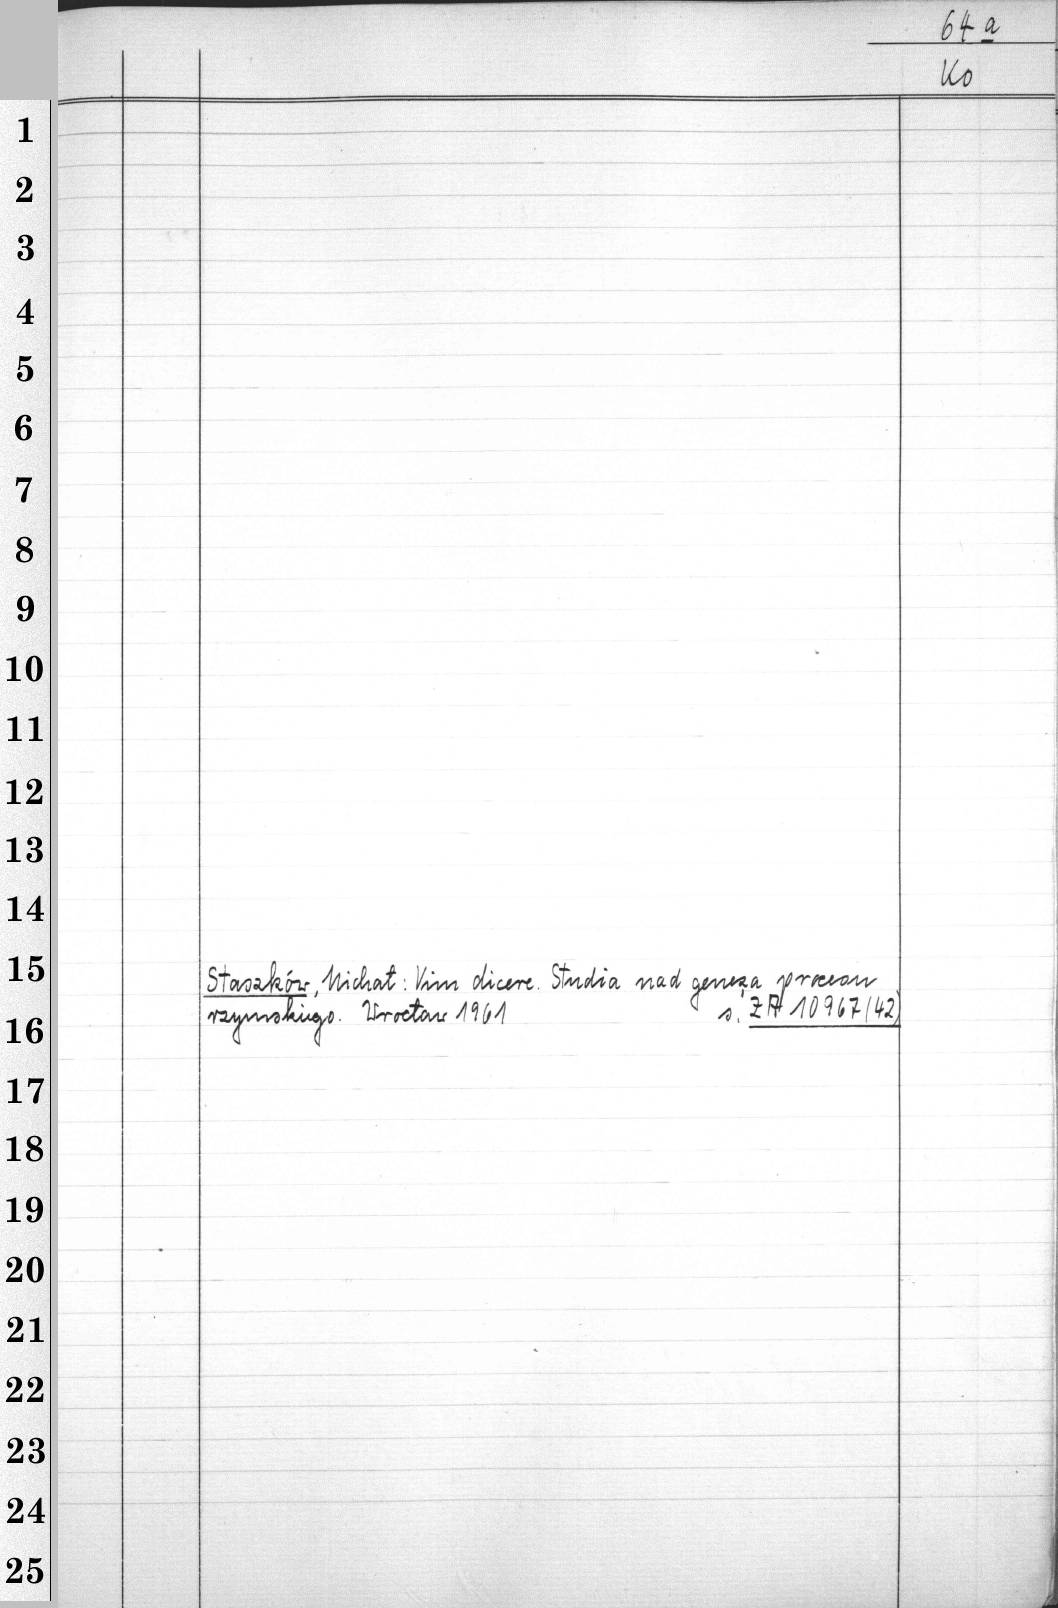 64 a
Ko
1
2
3
4
5
6
7
8
9
10
11
12
13
14
15
Staszków, Michał: Vim dicere. Studia nad genezą procesu
16
rzymskiego. Wrocław 1961 s. ZA 10967(42)
17
18
19
20
21
22
23
24
25